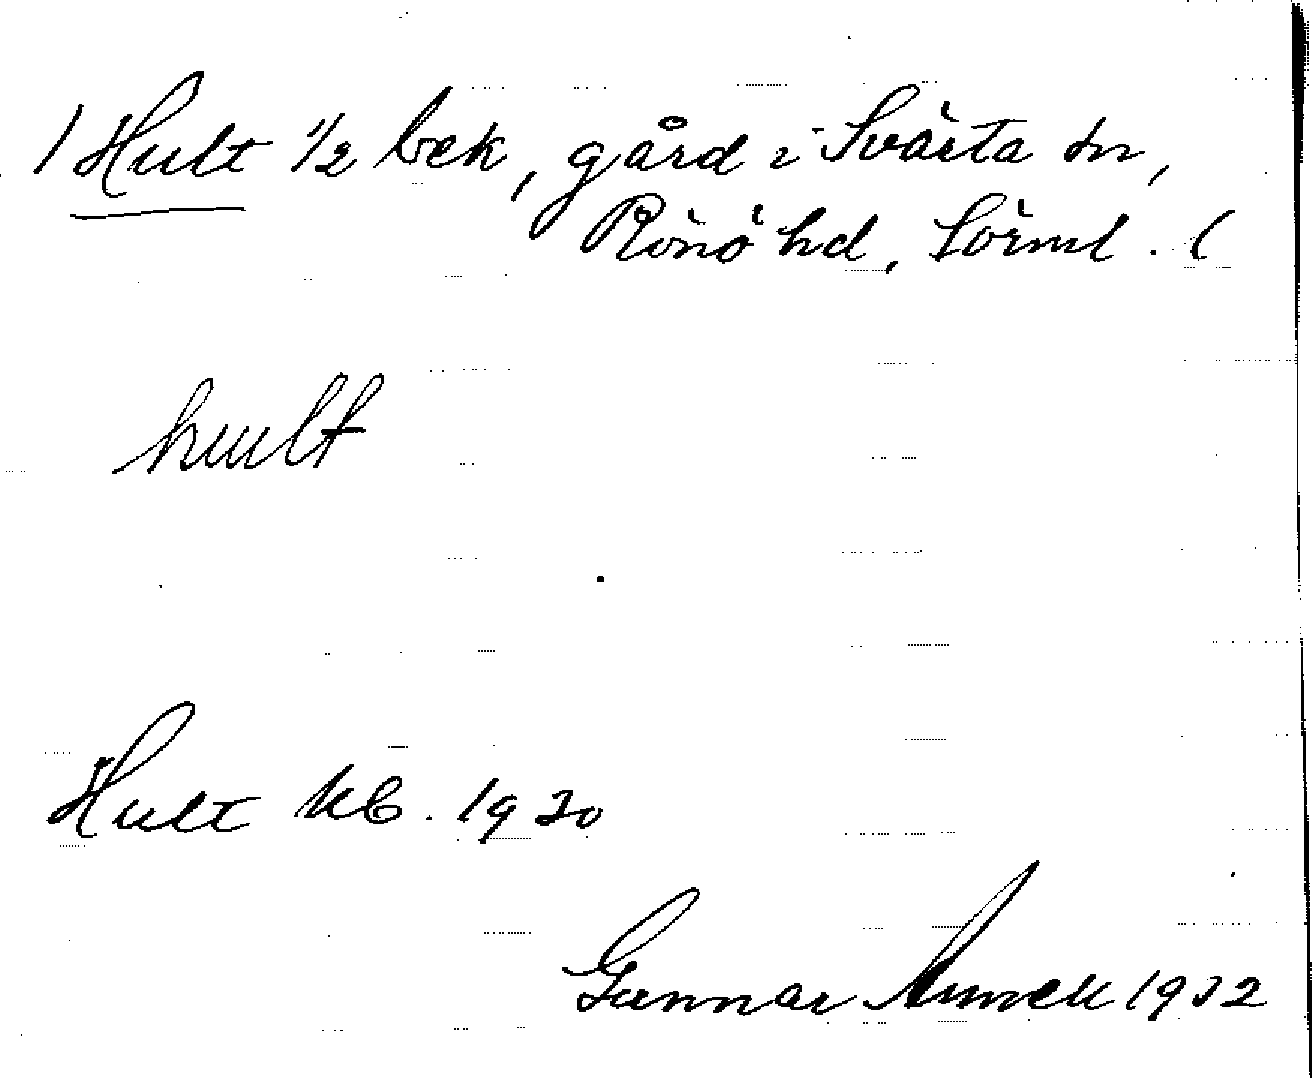 / Hult 1/2 bek, gård i Svärta sn,
Rönö hd, Sörml. (
hult
Hult kb. 1930
Gunnar 1932